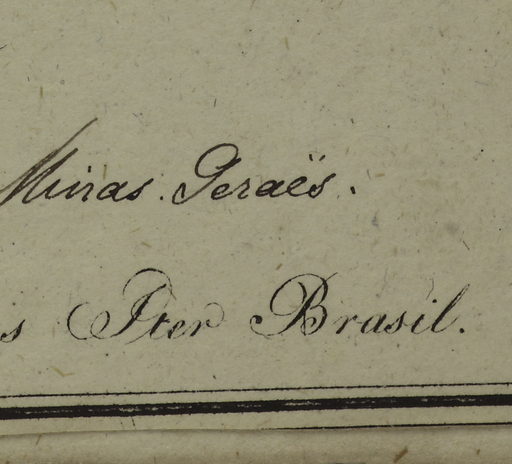 Minas. Geraës.
s Iter Brasil.